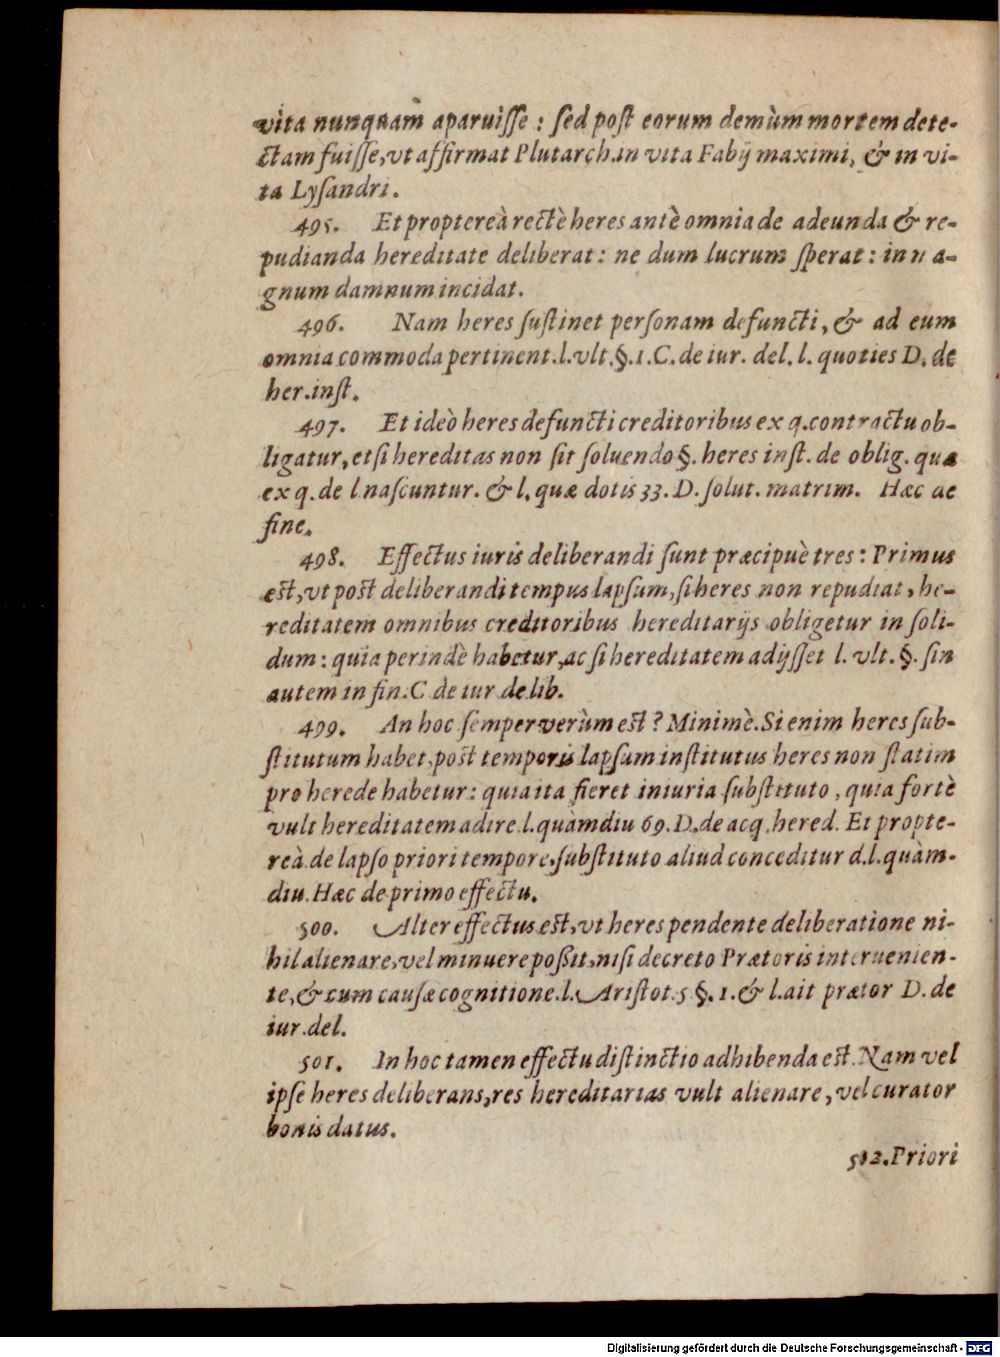 vita nunquam aparuiſſe : ſed poſt eorum demùm mortem dete-
ctam fuiſſe, vt affirmat Plutarch. in vita Fabij maximi, & in vi-
ta Lyſandri.
495. Et proptereà rectè heres antè omnia de adeunda & re-
pudianda hereditate deliberat : ne dum lucrum ſperat : in m a-
gnum damnum incidat.
496. Nam heres ſuſtinet perſonam defuncti, & ad eum
omnia commoda pertinent. l. vlt. §. 1. C. de iur. del. l. quoties D. de
her. inſt.
497. Et ideò heres defuncti creditoribus ex q. contractu ob-
ligatur, etſi hereditas non ſit ſoluendo §. heres inſt. de oblig. quæ
ex q. de l. naſcuntur. & l. quæ dotis 33. D. ſolut. matrim. Hæc de
fine.
498. Effectus iuris deliberandi ſunt præcipuè tres : Primus
est, vt post deliberandi tempus lapſum, ſi heres non repudiat, he-
reditatem omnibus creditoribus hereditarijs obligetur in ſoli-
dum : quia perindè habetur, ac ſi hereditatem adijſſet l. vlt. §. ſin
autem in fin. C de iur delib.
499. An hoc ſemper verùm est ? Minimè. Si enim heres ſub-
ſtitutum habet, post temporis lapſum inſtitutus heres non ſtatim
pro herede habetur : quia ita fieret iniuria ſubſtituto, quia fortè
vult hereditatem adire. l. quàmdiu 69. D. de acq. hered. Et propte-
reà de lapſo priori tempore, ſubſtituto aliud conceditur d. l. quàm-
diu. Hæc de primo effectu.
500. Alter effectus est, vt heres pendente deliberatione ni-
hil alienare, vel minuere poßit, niſi decreto Prætoris interuenien-
te, & cum cauſæ cognitione. l. Ariſtot. 5 §. 1. & l. ait prætor D. de
iur. del.
501. In hoc tamen effectu diſtinctio adhibenda est. Nam vel
ipſe heres deliberans, res hereditarias vult alienare, vel curator
bonis datus.
502. Priori
Digitalisierung gefördert durch die Deutsche Forschungsgemeinschaft - DFG